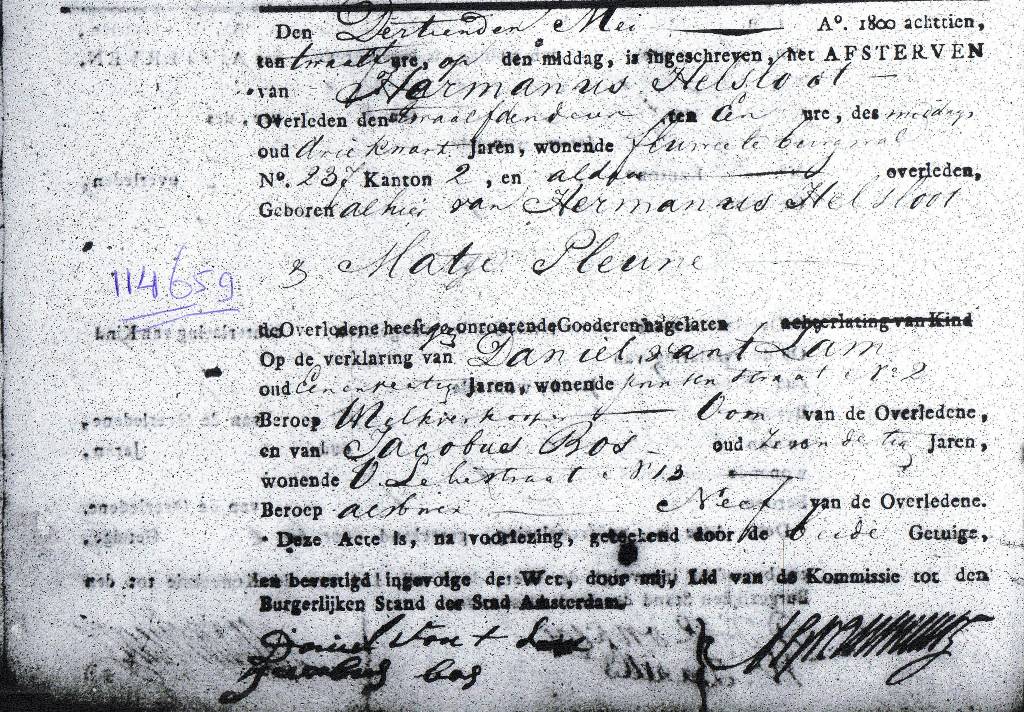 Den Dertienden Mei A°. 1800 achttien,
ten twaalf ure, op den middag, is ingeschreven, het AFSTERVEN
van Hermanus Helsloot
Overleden den twaalfden deser ten Een ure, des middags
oud driekwart Jaren, wonende fluweele burgwal
N°. 237 Kanton 2, en aldaar overleden,
Geboren alhier van Hermanus Helsloot
& Matje Pleune
114659
de Overledene heeft gn onroerende Gooderen nagelaten achterlating van Kind
Op de verklaring van Daniel vant Lam
oud Jaren, wonende straat N° 2
Beroep Oom van de Overledene,
en van Jacobus Bos oud Jaren,
wonende N 13
Beroep Neef van de Overledene.
Deze Acte is, na voorlezing, geteekend door de beide Getuige,
en bevestigd ingevolge de Wet, door mij, Lid van de Kommissie tot den
Burgerlijken Stand der Stad Amsterdam.
Daniel vant Lam
Jacobus bos